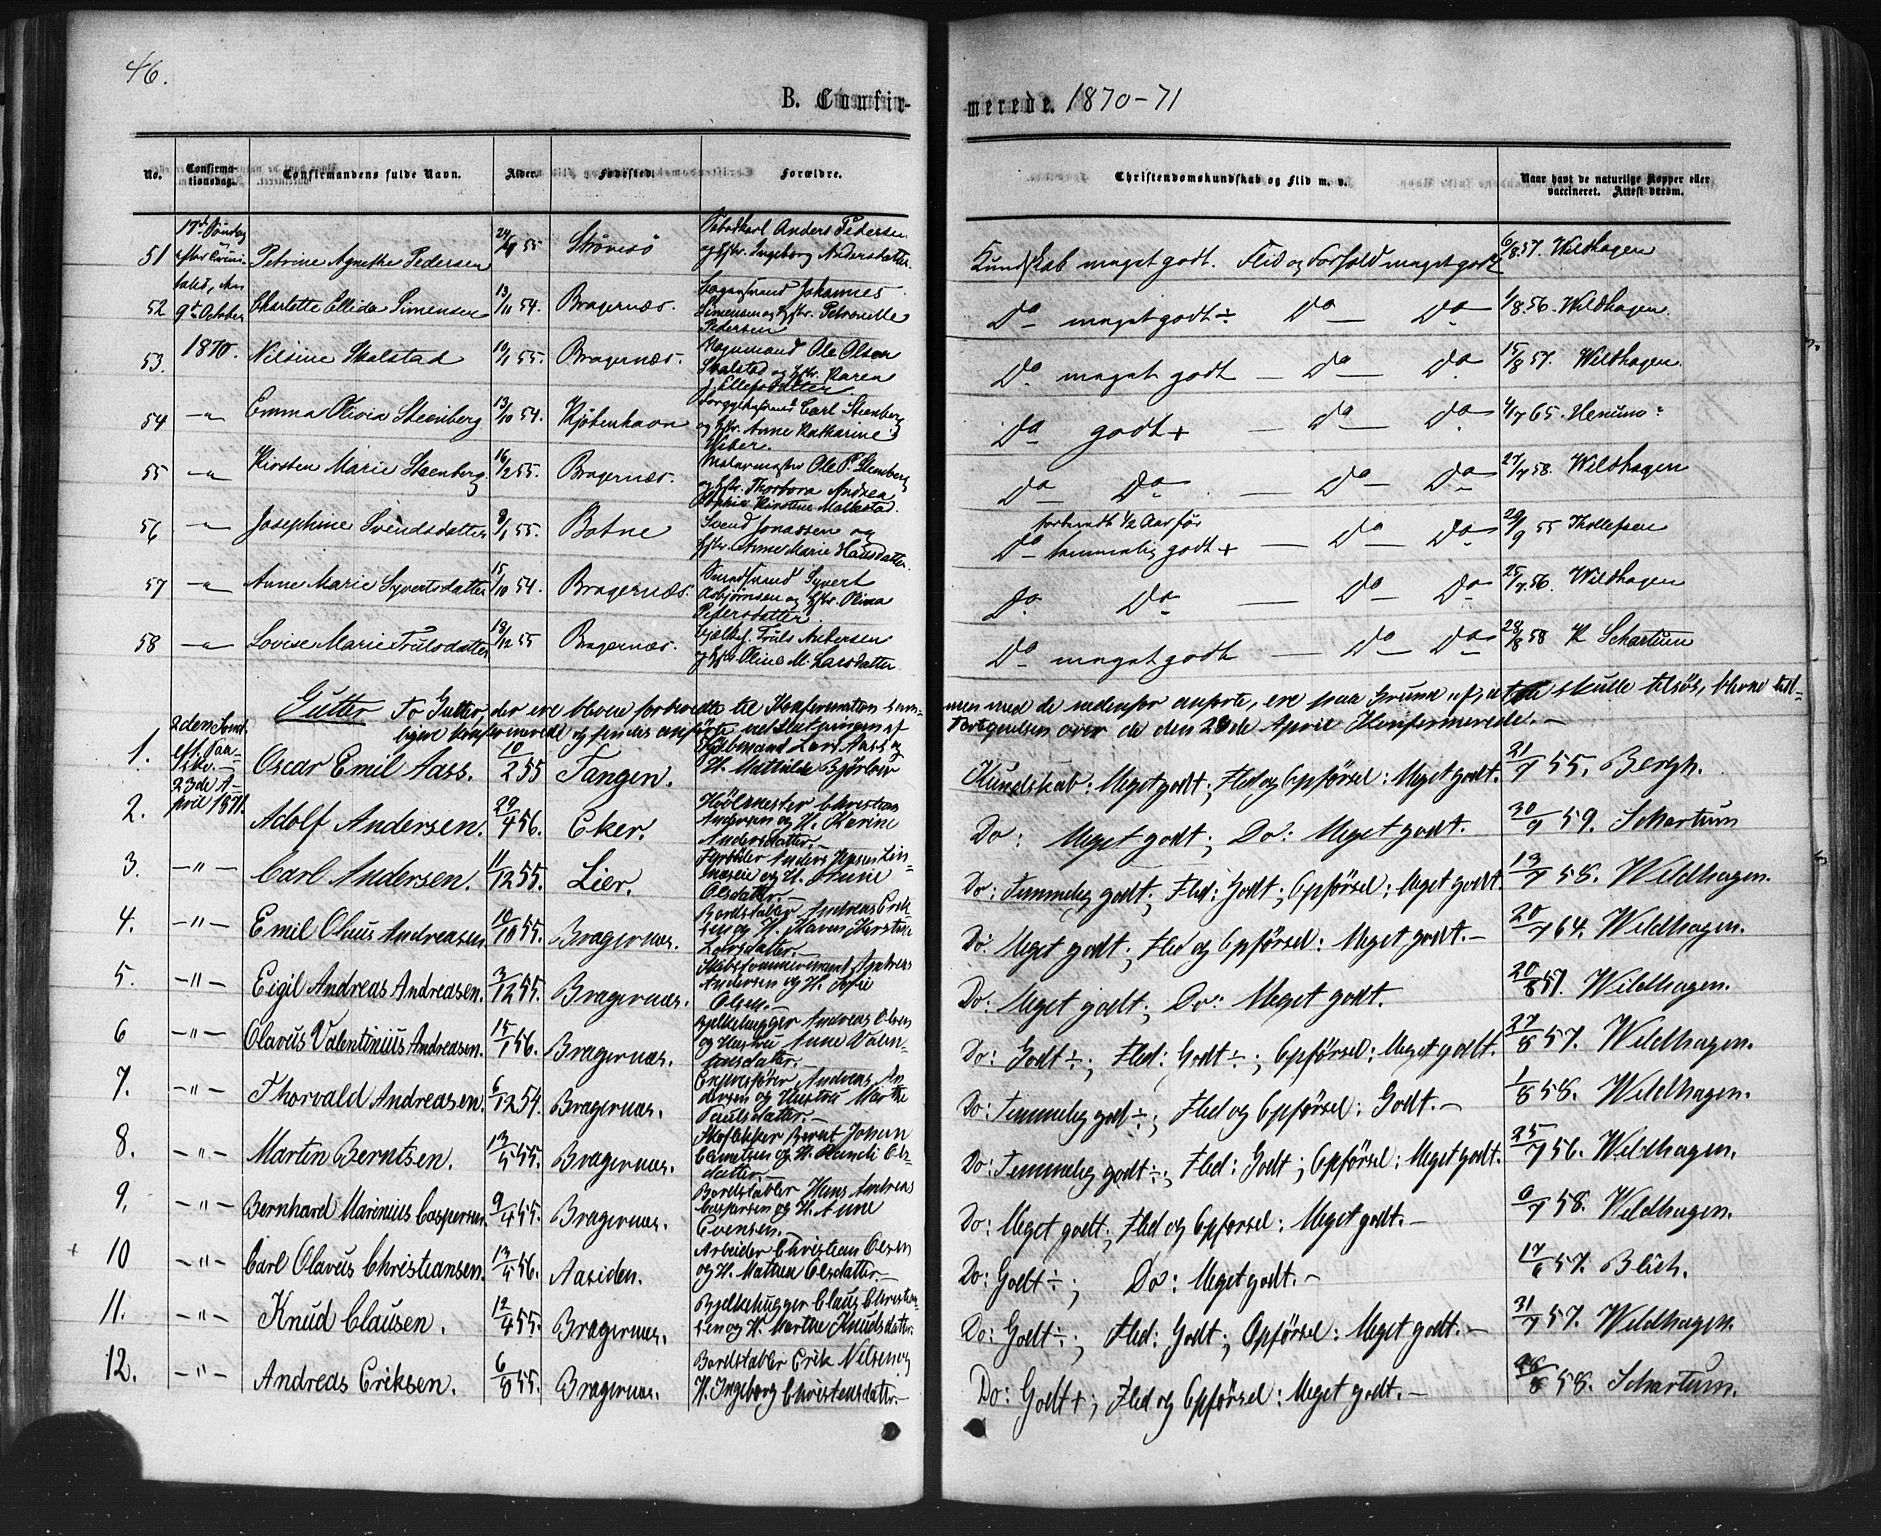 46.
B. Confir-
merede. 1870-71
No.
Confirma-
tionsdag.
Confirmandens fulde Navn.
Alder.
Fødested.
Forældre.
Christendomskundskab og Flid m. v.
Naar havt de naturlige Kopper eller
vaccineret. Attest derom.
17de Søndag
51 efter Trini- Petrine Agnethe Pedersen 55 Strømsø Anders Pedersen
og Hstr. Ingeborg Andersdatter.
Kundskab meget godt. Flid og Forhold meget godt 6/8 57. Wildhagen
52 9de October Charlotte Ellida Simensen 13/11 54. Bragernæs. Johannes
Simensen og Hstr. Petronelle
Pedersen
Do meget godt ÷ Do Do 1/8 56. Wildhagen.
53. 1870. Nilsine Skalstad 10/1 55. Bragernæs. Ole Olsen
Skalstad og Hstr. Karen
Ellefsdatter
Do meget godt — Do Do 15/8 57. Wildhagen.
54 —"— Emma Olivia Steenberg 13/10 54. Kjøbenhavn Carl Steenberg
og Hstr. Anne Katharine
Weber.
Do godt + — Do Do 4/7 65.
55 —"— Kirsten Marie Steenberg 16/2 55. Bragernæs. Malermester Ole P. Steenberg
og Hstr. Thorbora Andrea
Sophie Kirstine
Do Do — Do Do 27/7 58. Wildhagen
56 —"— Josephine Svendsdatter 8/1 55. Botne Svend Jonassen og
Hstr. Anne Marie Hansdatter.
forberedt 1/2 Aar før
Do temmelig godt + — Do Do 29/9 55 Thollefsen
57 —"— Anne Marie Syvertsdatter 15/10 54. Bragernæs. Syvert
Asbjørnsen og Hstr. Olina
Pedersdatter
Do Do — Do Do 25/7 56. Wildhagen
58 —"— Lovise Marie Trulsdatter 18/12 55 Bragernæs. Truls Andersen
og Hstr. Oline M. Larsdatter
Do meget godt — Do Do 28/8 58 K Schartum
Gutter To Gutter, der ere blevne forberedte til Konfirmation sam-
men med de nedenfor anførte, ere paa Grund af, at de skulle tilsøs, blevne tid-
ligere konfirmerede og findes anførte ved Slutningen af
Fortegnelsen over de den 23de April Konfirmerede. —
2den Sønd.
eft. Paa-
ske. —
23de A-
pril 1871.
1. Oscar Emil Aass. 10/2 55 Tangen. Lars Aass og
H. Mathilde
Kundskab: Meget godt; Flid og Opførsel: Meget godt. 21/7 55. Bergh.
2. Adolf Andersen. 29/4 56. Eker. Christian
Andersen og H. Karine
Andersdatter. —
Do: Meget godt; Do: Meget godt. 30/9 59. Schartum
3. —"— Carl Andersen. 11/12 55. Lier. Fyrbøder Anders
og H. Anne
Olsdatter. —
Do: Temmelig godt; Flid: Godt; Opførsel: Meget godt. 13/7 58. Wildhagen.
4. —"— Emil Olaus Andreasen 10/10 55. Bragernæs. Bordstabler Andreas Erik-
sen og H. Maren Kirstine
Larsdatter. —
Do: Meget godt; Flid og Opførsel: Meget godt. — 20/7 64. Wildhagen.
5. —"— Eigil Andreas Andreasen. 3/12 55. Bragernæs. Skibstømmermand Andreas
Andersen og H. Sofie
Olsen. —
Do: Meget godt; Do: Meget godt. 20/8 57. Wildhagen.
6 —"— Olaves Valentinius Andreasen. 15/1 56. Bragernæs. Bjelkehugger Andreas Olsen
og Hustru Anne Valen-
tinsdatter. —
Do: Godt ÷; Flid: Godt ÷; Opførsel: Meget godt. 27/8 57. Wildhagen.
7. —"— Thorvald Andreasen. 6/12 54. Bragernæs. Andreas An-
dersen og Hustru Marthe
Paulsdatter. —
Do: Temmelig godt ÷; Flid og Opførsel: Godt. — 1/8 58. Wildhagen.
8. —"— Martin Berntsen. 13/5 55. Bragernæs. Skoflikker Bernt Johan
og H. Randi Ols-
datter. —
Do: Temmelig godt ÷; Flid: Godt; Opførsel: Meget godt. 25/7 56. Wildhagen.
9. —"— Bernhard Marinius Caspersen 9/4 55. Bragernæs. Bordstabler Hans Andreas
Caspersen og H. Anne
Evensen. —
Do: Meget godt; Flid og Opførsel: Meget godt. — 6/7 58. Wildhagen.
10 —"— Carl Olavus Christiansen. 13/5 56. Aasiden. Arbeider Christian Olsen
og H. Mathea Olsdatter. —
Do: Godt ÷; Do: Meget godt. — 17/6 57. Blich.
11. —"— Knud Clausen. 12/4 55. Bragernæs. Bjelkehugger Claus Christian-
sen og H. Marthe Knudsdatter.
Do: Godt ÷; Flid: Godt; Opførsel: Meget godt. — 31/7 57. Wildhagen.
12. —"— Andreas Eriksen. 6/8 55. Bragernæs. Bordstabler Erik Nilsen og
H. Ingeborg Christensdatter.
Do: Godt +; Flid og Opførsel: Meget godt. — 58. Schartum.